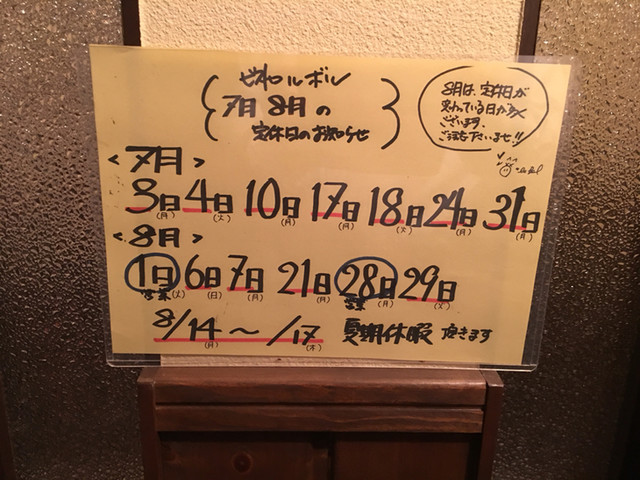 ピネロルボル
7月 8月 の
定休日のお知らせ
8月は、定休日が
変わっている日が多く
ございます。
ご注意下さいませ!!
<7月>
3日(月) 4日(火) 10日(月) 17日(月) 18日(火) 24日(月) 31日(月)
<8月>
1日(火) 6日(日) 7日(月) 21日(月) 28日(月) 29日(火)
営業 営業
8/14(月)〜/17(木) 夏期休暇 頂きます